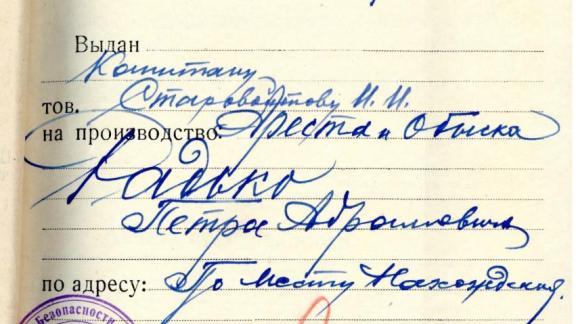 Выдан
Капитану
тов. Старовойтову И. И.
на производство: Ареста и Обыска
Радько
Петра Абрамовича
по адресу: По месту Нахождения.
Безопасности